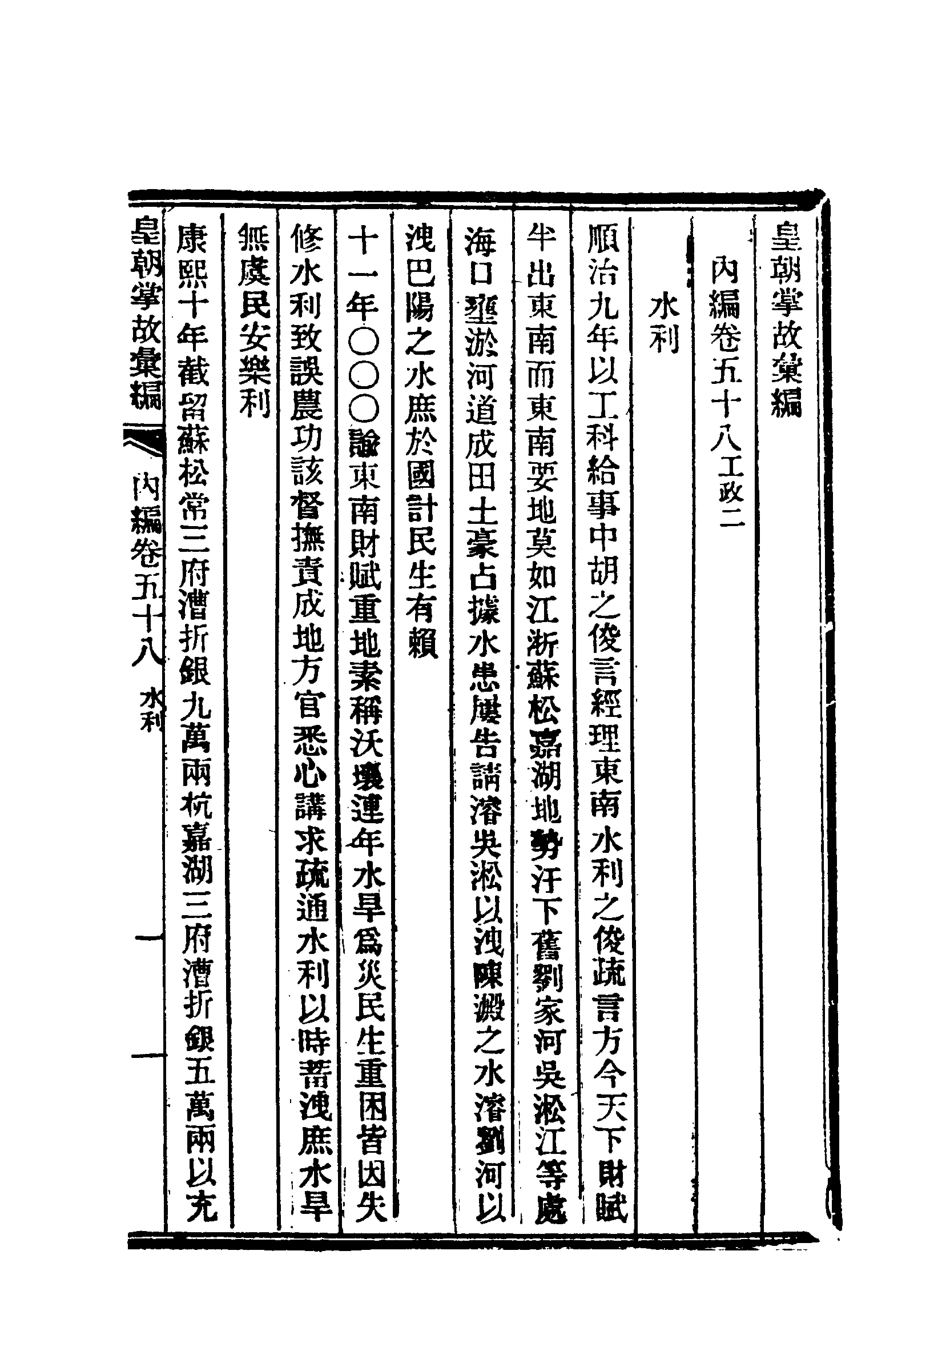 皇朝掌故彙編
內編卷五十八工政二
水利
順治九年以工科給事中胡之俊言經理東南水利之俊疏言方今天下財賦
半出東南而東南要地莫如江浙蘇松嘉湖地勢汙下舊劉家河吳淞江等處
海口壅淤河道成田土豪占據水患屢告請濬吳淞以洩陳澱之水濬劉河以
洩巴陽之水庶於國計民生有賴
十一年〇〇〇諭東南財賦重地素稱沃壤連年水旱爲災民生重困皆因失
修水利致誤農功該督撫責成地方官悉心講求疏通水利以時蓄洩庶水旱
無虞民安樂利
康熙十年截留蘇松常三府漕折銀九萬兩杭嘉湖三府漕折銀五萬兩以充
皇朝掌故彙編 內編卷五十八 水利 一 一